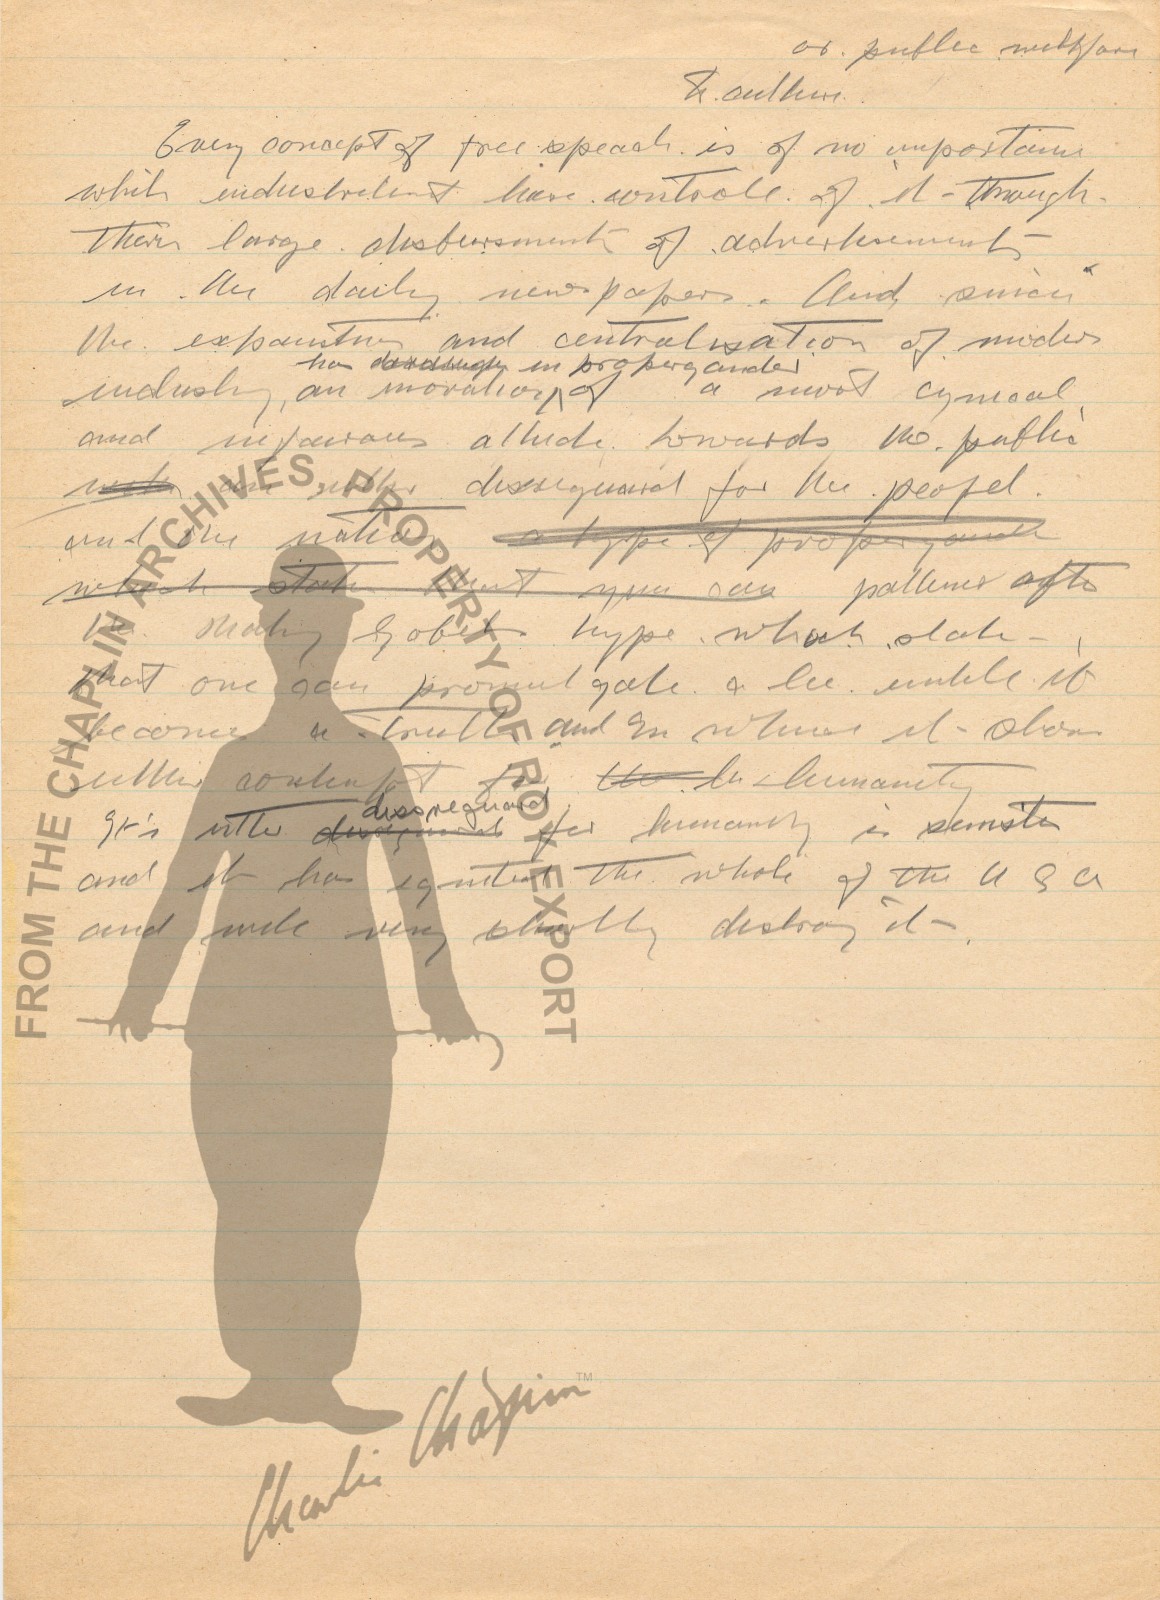 or public wellfare
Every concept of free speach is of no importanc
while industrelist have controle of it - through
their large disbursments of advertisements
in the daily newspapers. And since
the expantion and centralisation of modern
has in propergander
industry, an of a most cynical
and nefarious attude towards the public
an utter dissreguard for the peopel.
and the nation a type of propergander
which state that you can patterned after
the Gobels type which state -
that one can promulgate a lie untile it
becomes a truth, and in where it - shows
utter contempt for the humanity
dissreguard
It's utter for humanity is sinister
and it has the whole of the U S A
and will very shortly destroy it -
FROM THE CHAPLIN ARCHIVES. PROPERTY OF ROY EXPORT
Charlie Chaplin™